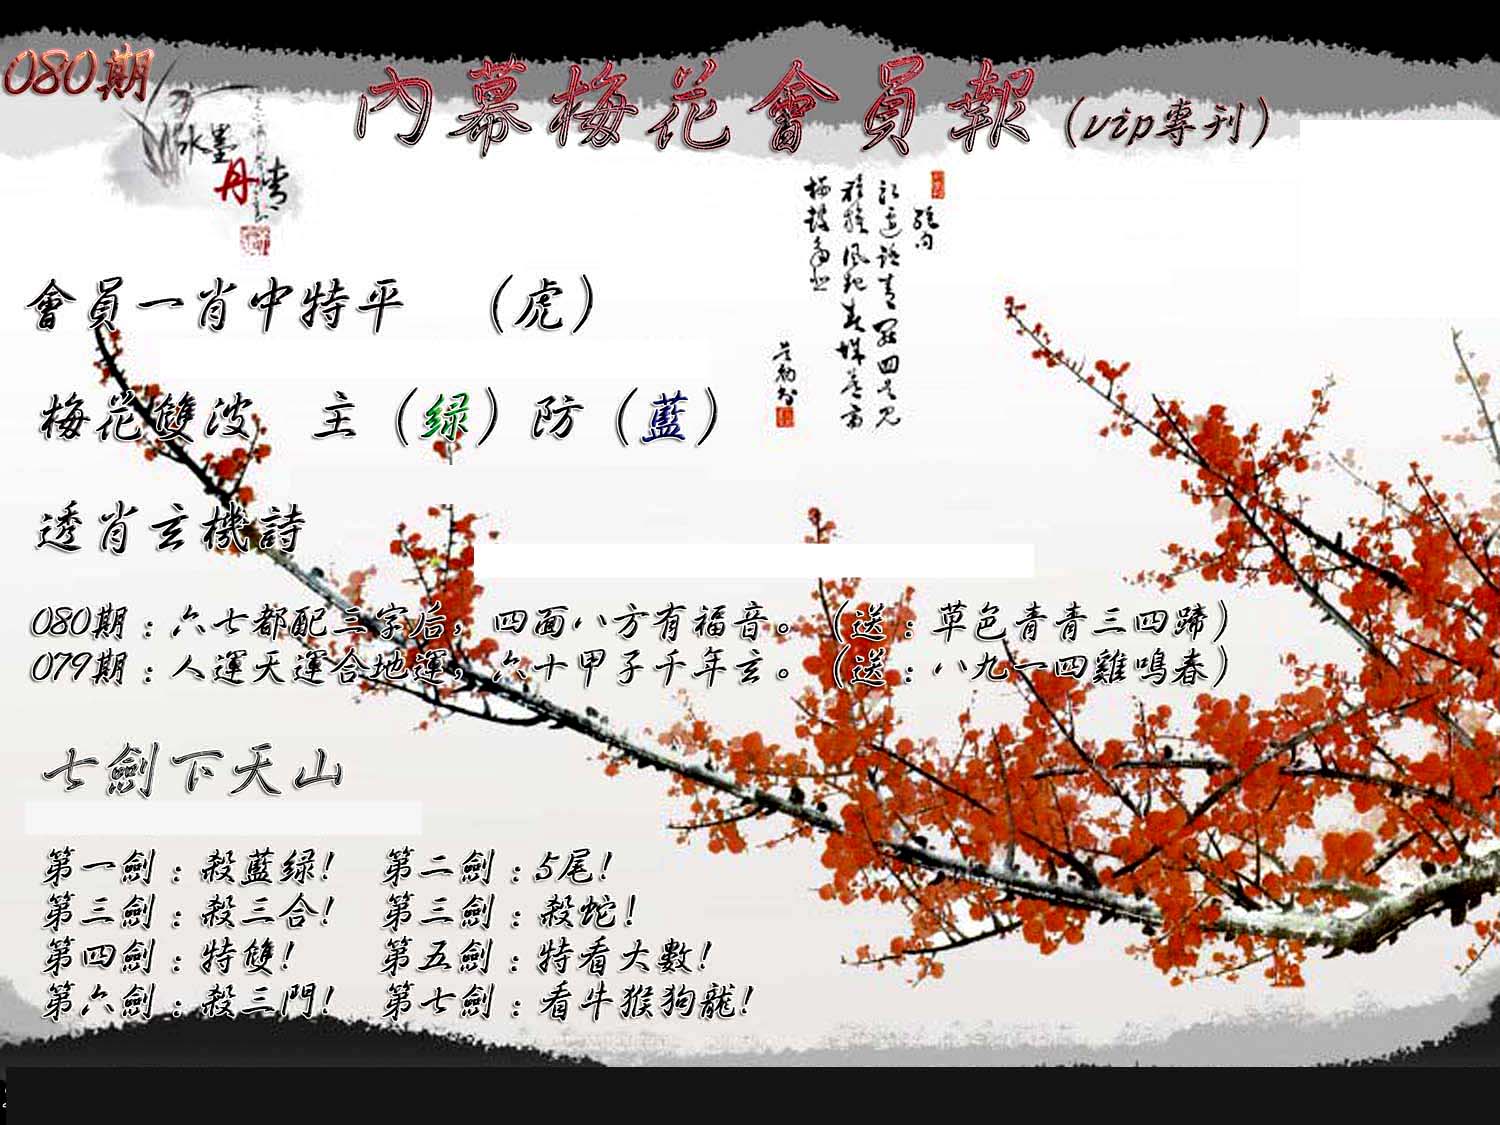 080期
內幕梅花會員報（vip專刊）
水墨
丹青
會員一肖中特平　（虎）
梅花雙波　主（绿）防（藍）
透肖玄機詩
080期：六七都配三字后，四面八方有福音。（送：草色青青三四蹄）
079期：人運天運合地運，六十甲子千年玄。（送：八九一四雞鳴春）
七劍下天山
第一劍：殺藍绿！　第二劍：5尾！
第三劍：殺三合！　第三劍：殺蛇！
第四劍：特雙！　第五劍：特看大數！
第六劍：殺三門！　第七劍：看牛猴狗龍！